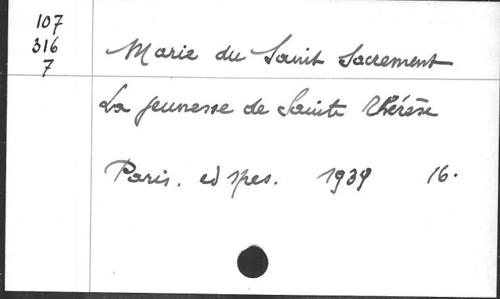 107
316
7
Marie du Saint Sacrement
La jeunesse de Sainte Thérèse
Paris. ed spes. 1939 16.